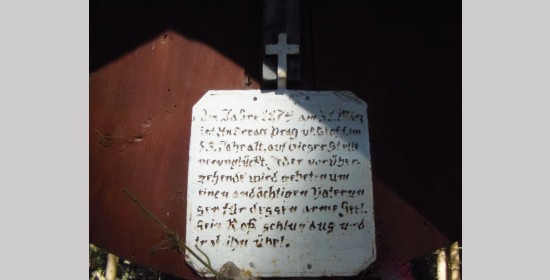 Im Jahre 1874 am 31. März
ist Andreas
Jahr alt, auf dieser Stelle
verunglückt. Jeder vorüber
gehende wird gebeten um
einen andächtigen Vaterun
ser für dessen arme Seel.
Sein Roß schlug aus und
traf ihn übel.